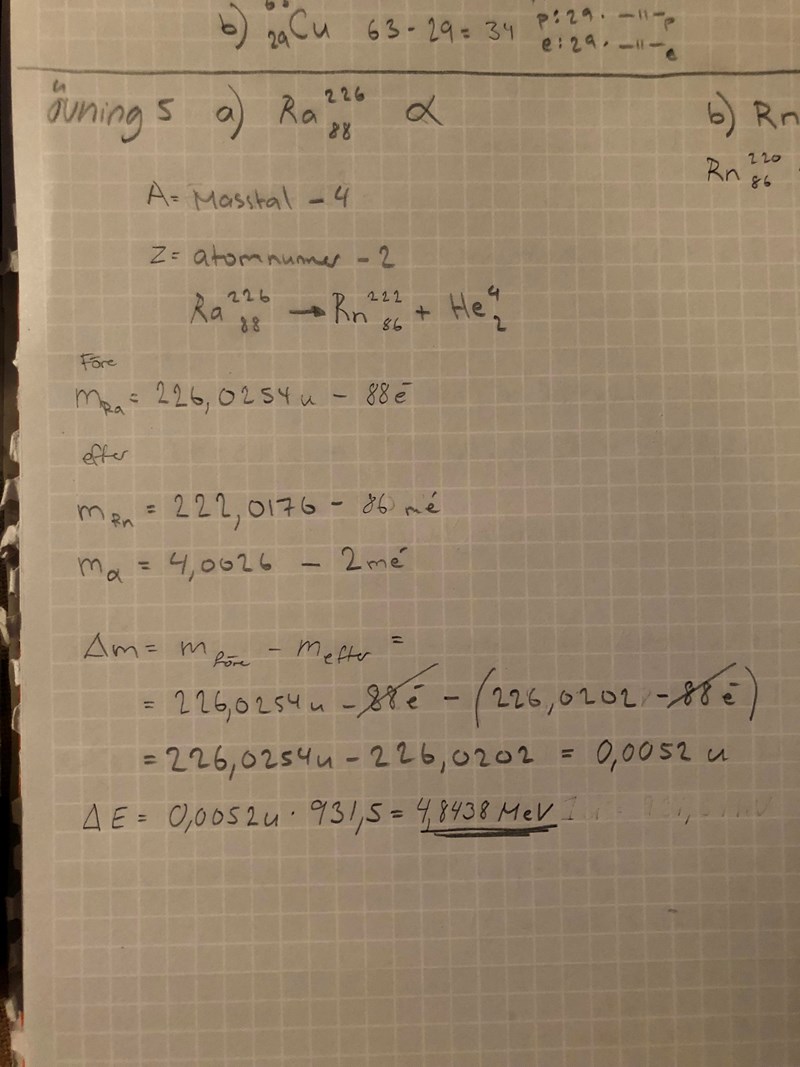 b) ₂₉Cu 63 - 29 = 34 p: 29. -"-p
e: 29. -"-e
övning 5 a) Ra ²²⁶ ₈₈ α b) Rn
Rn ²²⁰ ₈₆
A = Masstal - 4
Z = atomnumer - 2
Ra ²²⁶ ₈₈ → Rn ²²² ₈₆ + He ⁴ ₂
Före
m_Ra = 226,0254 u - 88 e⁻
efter
m_Rn = 222,0176 - 86 me⁻
m_α = 4,0026 - 2 me⁻
Δm = m_före - m_efter =
= 226,0254 u - 88 e⁻ - (226,0202 - 88 e⁻)
= 226,0254 u - 226,0202 = 0,0052 u
ΔE = 0,0052 u · 931,5 = 4,8438 MeV